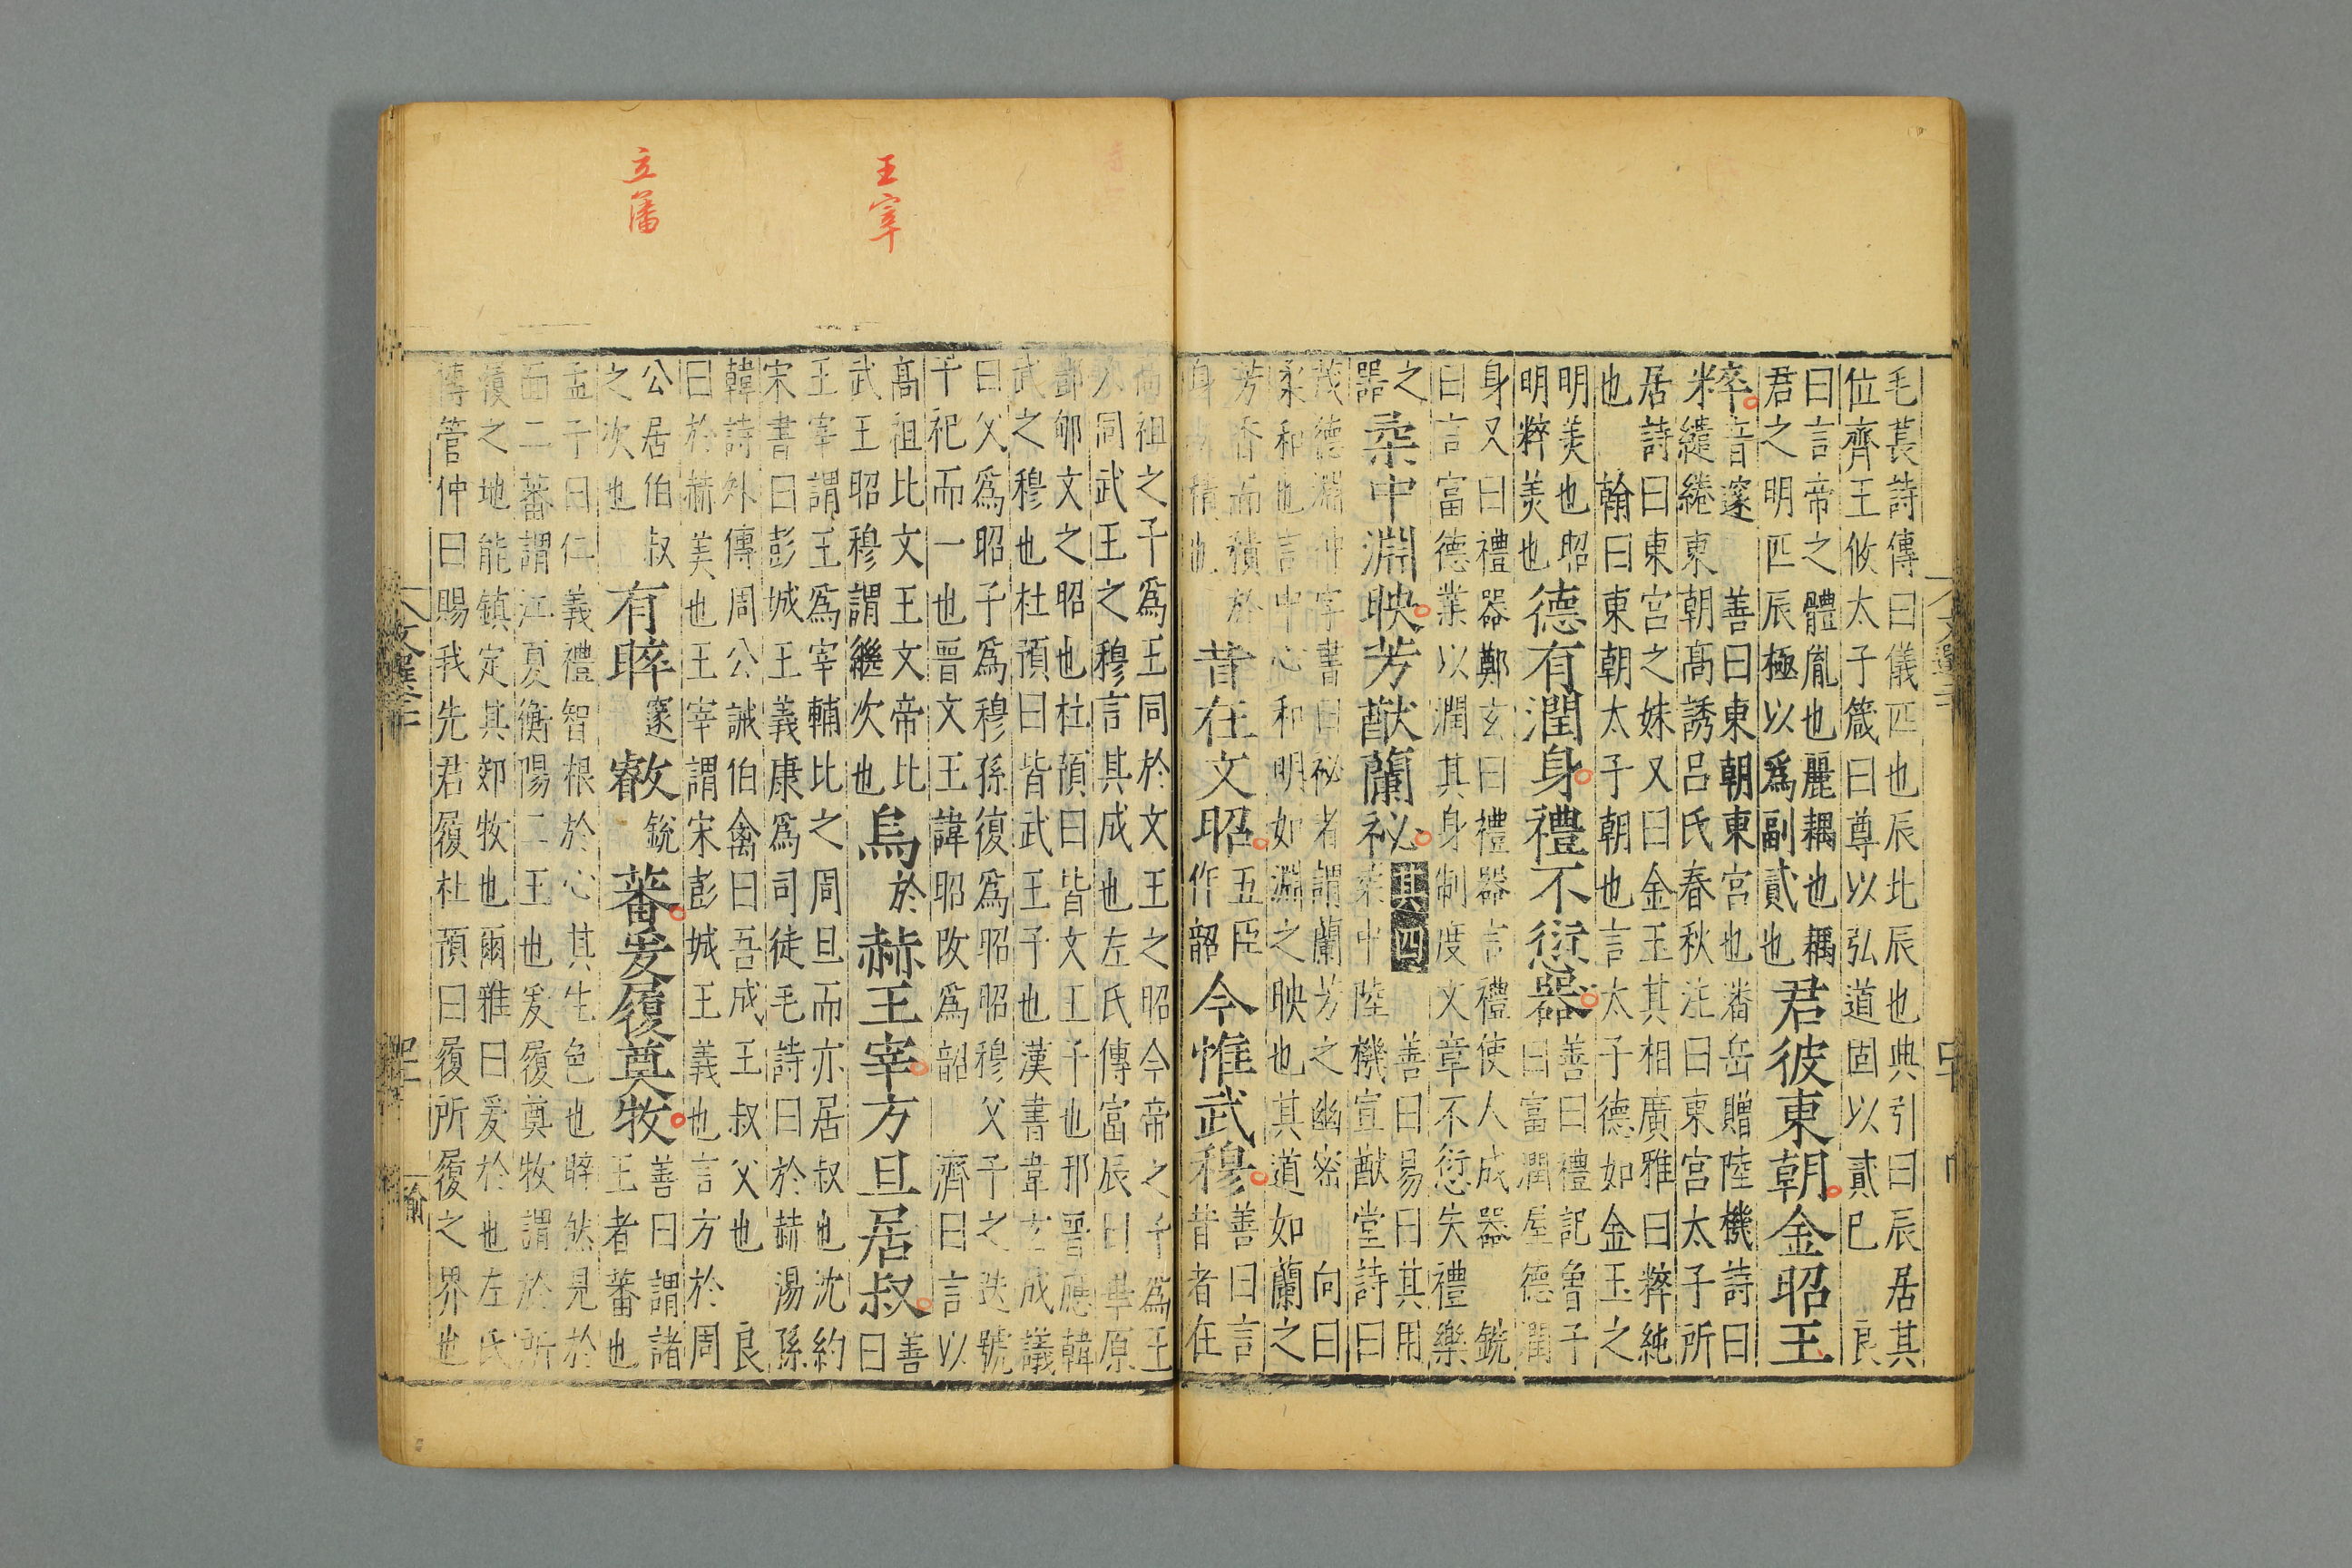 毛萇詩傳曰儀匹也辰北辰也典引曰辰居其
位齊王攸太子箴曰尊以弘道固以貳已 良
曰言帝之體胤也麗耦也耦
君之明匹辰極以爲副貳也
君彼東朝金昭王
粹音邃 善曰東朝東宮也潘岳贈陸機詩曰
米繾綣東朝高誘呂氏春秋注曰東宮太子所
居詩曰東宮之妹又曰金玉其相廣雅曰粹純
也 翰曰東朝太子朝也言太子德如金玉之
明美也昭
明粹美也
德有潤身禮不愆器
善曰禮記曾子
曰富潤屋德潤
身又曰禮器鄭玄曰禮器言禮使人成器 銑
曰言富德業以潤其身制度文章不愆失禮樂
之
器
柔中淵映芳猷蘭祕
其四
善曰易曰其用
柔中陸機宣猷堂詩曰
茂德淵沖字書曰祕者謂蘭芳之幽密 向曰
柔和也言中心和明如淵之映也其道如蘭之
芳香而積於
身
昔在文昭
五臣
作韶
今惟武穆
善曰言
昔者在
祖之子爲王同於文王之昭今帝之子爲王
同武王之穆言其成也左氏傳富辰曰畢原
酆郇文之昭也杜預曰皆文王子也邘晉應韓
武之穆也杜預曰皆武王子也漢書韋玄成議
曰父爲昭子爲穆孫復爲昭昭穆父子之迭號
千祀而一也晉文王諱昭改爲韶 濟曰言以
高祖比文王文帝比
武王昭穆謂繼次也
烏
於
赫王宰方旦居叔
善
曰
王宰謂王爲宰輔比之周旦而亦居叔也沈約
宋書曰彭城王義康爲司徒毛詩曰於赫湯孫
韓詩外傳周公誡伯禽曰吾成王叔父也 良
曰於赫美也王宰謂宋彭城王義也言方於周
公居伯叔
之次也
有睟
邃
叡
銳
蕃爰履奠牧
善曰謂諸
王者蕃也
孟子曰仁義禮智根於心其生色也睟然見於
面二蕃謂江夏衡陽二王也爰履奠牧謂於所
履之地能鎮定其郊牧也爾雅曰爰於也左氏
傳管仲曰賜我先君履杜預曰履所履之界也
王宰
立藩